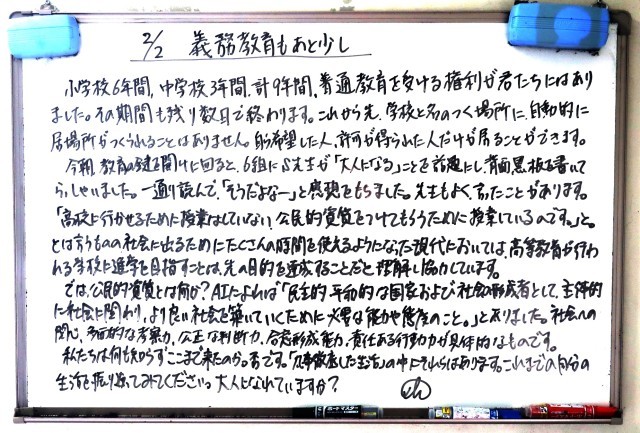 2/2 義務教育もあと少し
小学校6年間、中学校3年間、計9年間、普通教育を受ける権利が君たちにはあり
ました。その期間も残り数日で終わります。これから先、学校と名のつく場所に、自動的に
居場所がつくられることはありません。自ら希望した人、許可が得られた人だけが居ることができます。
今朝、教室の鍵を開けに回ると、6組にS先生が「大人になる」ことを話題にし、背面黒板を書いて
らっしゃいました。一通り読んで、「そうだよなー」と感想をもちました。先生もよく言ったことがあります。
「高校に行かせるために授業はしていない、公民的資質をつけてもらうために授業しているのです。」と。
とは言うものの社会に出るためにたくさんの時間を使えるようになった現代においては、高等教育が行わ
れる学校に進学を目指すことは、先の目的を達成することだと理解し協力しています。
では、公民的資質とは何か?AIによれば「民主的・平和的な国家および社会の形成者として、主体的
に社会に関わり、より良い社会を築いていくために必要な能力や態度のこと。」とありました。社会への
関心、多面的な考察力、公正な判断力、合意形成能力、責任ある行動力が具体的なものです。
私たちは何も知らずここまで来たのか。否です。「凡事徹底した生活」の中にそれらはあります。これまでの自分の
生活を振り返ってみてください。大人になれていますか?
ボードマスター